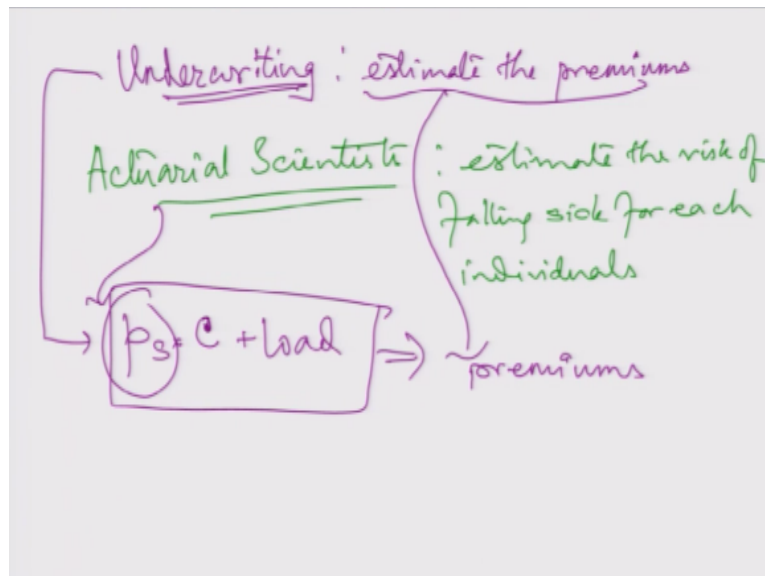 Underwriting : estimate the premiums
Actuarial Scientists : estimate the risk of
falling sick for each
individuals
Ps · C + Load ⇒ premiums